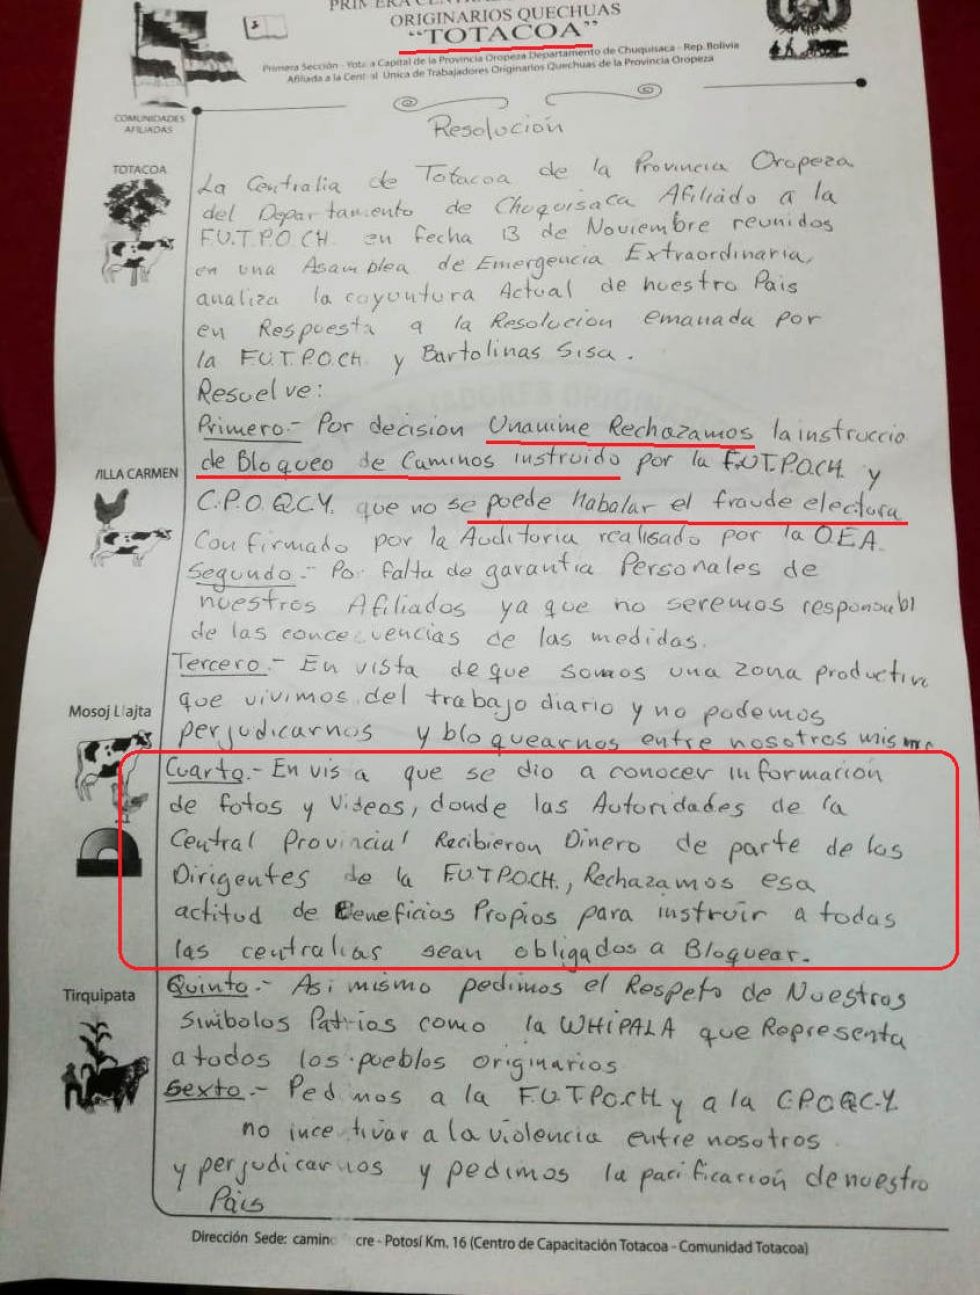 ORIGINARIOS QUECHUAS
"TOTACOA"
Primera Sección - Yotala Capital de la Provincia Oropeza Departamento de Chuquisaca - Rep. Bolivia
Afiliada a la Central Unica de Trabajadores Originarios Quechuas de la Provincia Oropeza
COMUNIDADES
AFILIADAS
Resolución
TOTACOA
La Centralia de Totacoa de la Provincia Oropeza
del Departamento de Chuquisaca Afiliado a la
F.U.T.P.O.CH. en fecha 13 de Noviembre reunidos
en una Asamblea de Emergencia Extraordinaria,
analiza la coyontura Actual de nuestro Pais
en Respuesta a la Resolucion emanada por
la F.U.T.P.O.CH. y Bartolinas Sisa.
Resuelve:
Primero.- Por decision Unanime Rechazamos la instruccio
de Bloqueo de Caminos instruido por la F.U.T.P.O.CH. y
VILLA CARMEN
C.P.O.Q.C.Y. que no se puede Habalar el fraude electora
Confirmado por la Auditoria realisado por la O.E.A.
Segundo.- Por falta de garantia Personales de
nuestros Afiliados ya que no seremos responsabl
de las concecuencias de las medidas.
Tercero.- En vista de que somos una zona productiva
que vivimos del trabajo diario y no podemos
Mosoj Llajta
perjudicarnos y bloquearnos entre nosotros mismo
Cuarto.- En vis a que se dio a conocer informacion
de fotos y Videos, donde las Autoridades de la
Central Provincial Recibieron Dinero de parte de los
Dirigentes de la F.U.T.P.O.CH., Rechazamos esa
actitud de Beneficios Propios para instruir a todas
las centralias sean obligados a Bloquear.
Tirquipata
Quinto.- Asi mismo pedimos el Respeto de Nuestros
Simbolos Patrios como la WHIPALA que Representa
a todos los pueblos originarios
Sexto.- Pedimos a la F.U.T.P.O.CH. y a la C.P.O.Q.C.Y.
no incentivar a la violencia entre nosotros
y perjudicarnos y pedimos la pacificación de nuestro
Pais
Dirección Sede: camino cre - Potosí Km. 16 (Centro de Capacitación Totacoa - Comunidad Totacoa)